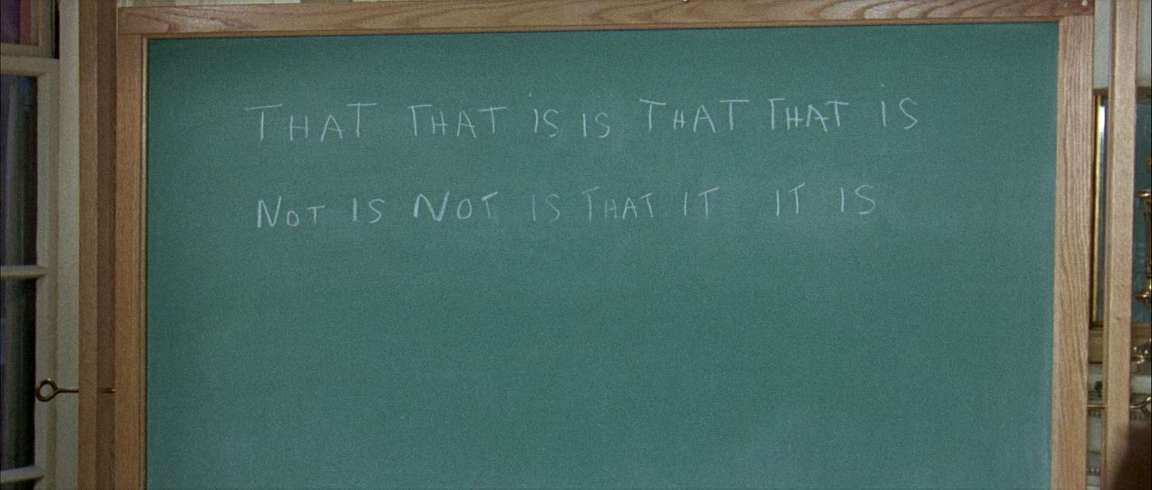 THAT THAT IS IS THAT THAT IS
NOT IS NOT IS THAT IT IT IS